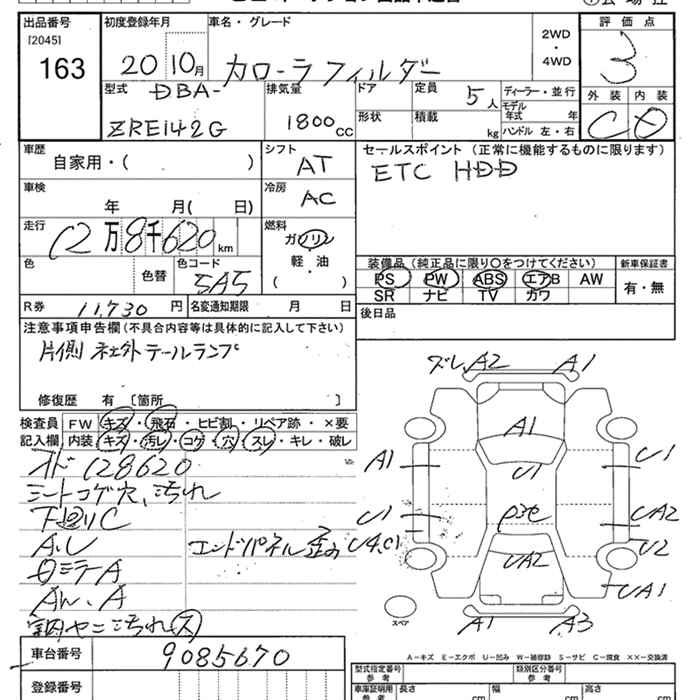 出品番号 初度登録年月 車名・グレード 評価点
[2045] 163 20 10月 カローラフィルダー 2WD・4WD 3
型式 DBA- 排気量 ドア 定員 5人 ディーラー・並行 外装 内装
ZRE142G 1800cc 形状 積載 kg モデル年式 年 C D
ハンドル 左・右
車歴 シフト セールスポイント(正常に機能するものに限ります)
自家用・( ) AT ETC HDD
車検 冷房
年 月( 日) AC
走行 燃料
12万8千620km ガソリン
軽・油
( )
色 色替 色コード 5A5
装備品(純正品に限り○をつけてください) 新車保証書
PS PW ABS エアB AW 有・無
SR ナビ TV カワ
R券 11,730円 名変通知期限 月 日 後日品
注意事項申告欄(不具合内容等は具体的に記入して下さい)
片側 社外テールランプ
修復歴 有 〔箇所 〕
検査員 FW キズ・飛石・ヒビ割・リペア跡・×要
記入欄 内装 キズ・汚レ・コゲ・穴・スレ・キレ・破レ
メド 128620
シートコゲ穴、汚れ
下回りC
A.U エンドパネル歪み
Aw.A
室内ヤニ汚れ(ス)
ズレ,A2 A1
A1
A1 U1 U1
U1 P3セ UA2
U4,C1 UA2 U2
UA1
スペア A1 A3
A−キズ E−エクボ U−凹み W−補修跡 S−サビ C−腐食 ××−交換済
車台番号 9085670
型式指定番号 参考 類別区分番号 参考
登録番号 車庫証明用 参考 長さ cm 幅 cm 高さ cm